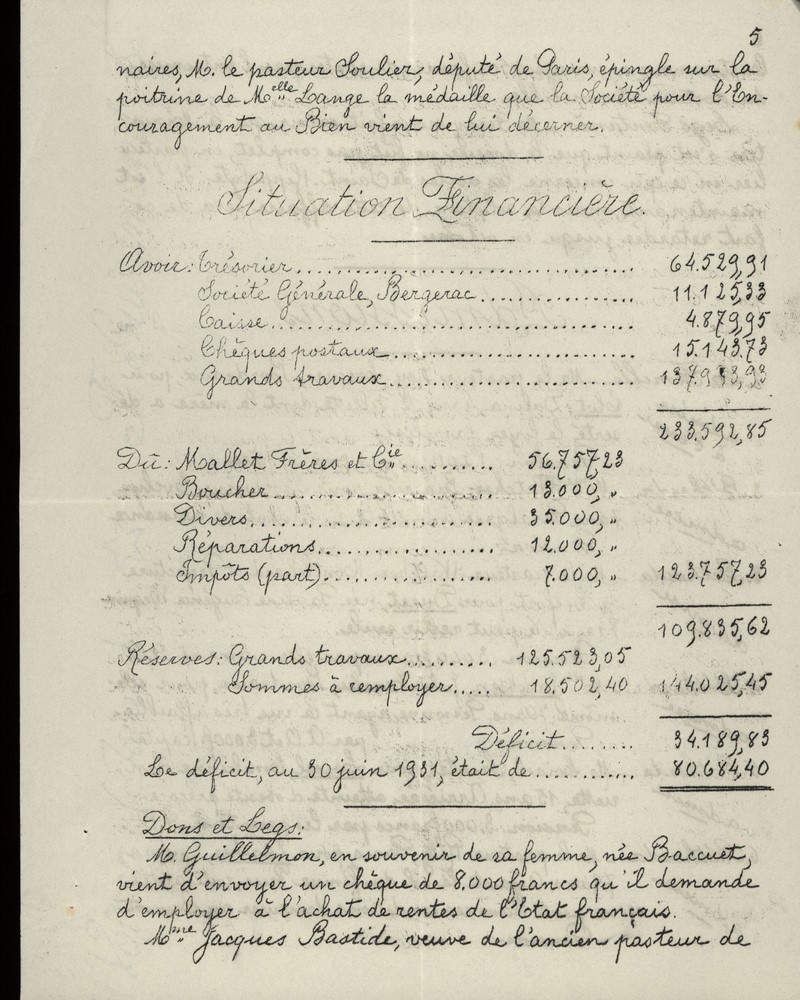 5
naires, M. le pasteur Soulier, député de Paris, épingle sur la
poitrine de Melle Lange la médaille que la Société pour l'En-
couragement au Bien vient de lui décerner.
Situation Financière.
Avoir: Trésorier........ 64.529,91
Société Générale, Bergerac........ 11.125,33
Caisse........ 4.879,95
Chèques postaux........ 15.143,73
Grands travaux........ 137.913,93
233.592,85
Dû: Mallet Frères et Cie........ 56.757,23
Boucher........ 13.000, "
Divers........ 35.000, "
Réparations........ 12.000, "
Impôts (part)........ 7.000, " 123.757,23
109.835,62
Réserves: Grands travaux........ 125.523,05
Sommes à remployer..... 18.502,40 144.025,45
Déficit........ 34.189,83
Le déficit, au 30 juin 1931, était de........ 80.684,40
Dons et Legs:
M. Guillelmon, en souvenir de sa femme, née Baccuet,
vient d'envoyer un chèque de 8.000 francs qu'il demande
d'employer à l'achat de rentes de l'Etat français.
Mme Jacques Bastide, veuve de l'ancien pasteur de